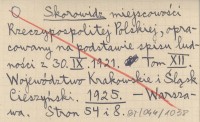 Skorowidz miejscowości
Rzeczypospolitej Polskiej, opra-
cowany na podstawie spisu lud-
ności z 30.IX.1921. Tom XII.
Województwo Krakowskie i Śląsk
Cieszyński. 1925. — Warsza-
wa. Stron 54 i 8.